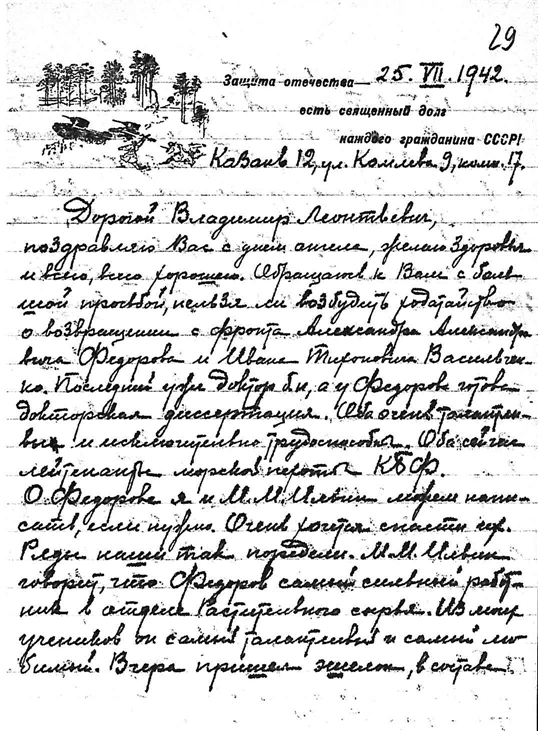 29
Защита отечества — 25.VII.1942.
есть священный долг
каждого гражданина СССР!
Казань 12, ул. Комлева 9, комн. 17.
Дорогой Владимир Леонтьевич,
поздравляю Вас с днем ангела, желаю здоровья
и всего, всего хорошего. Обращаюсь к Вам с боль
шой просьбой, нельзя ли возбудить ходатайство
о возвращении с фронта Александра Александро
вича Федорова и Ивана Тихоновича Васильчен-
ко. Последний уже доктор б.н., а у Федорова готова
докторская диссертация. Оба очень талантли-
вы и исключительно трудоспособны. Оба сейчас
лейтенанты морской пехоты КБФ.
О Федорове я и М.М. Ильин можем напи-
сать, если нужно. Очень хочется спасти их.
Ряды наши так поредели. М.М. Ильин
говорит, что Федоров самый сильный работ-
ник в отделе Растительного сырья. Из моих
учеников он самый талантливый и самый лю
бимый. Вчера пришел эшелон, в составе